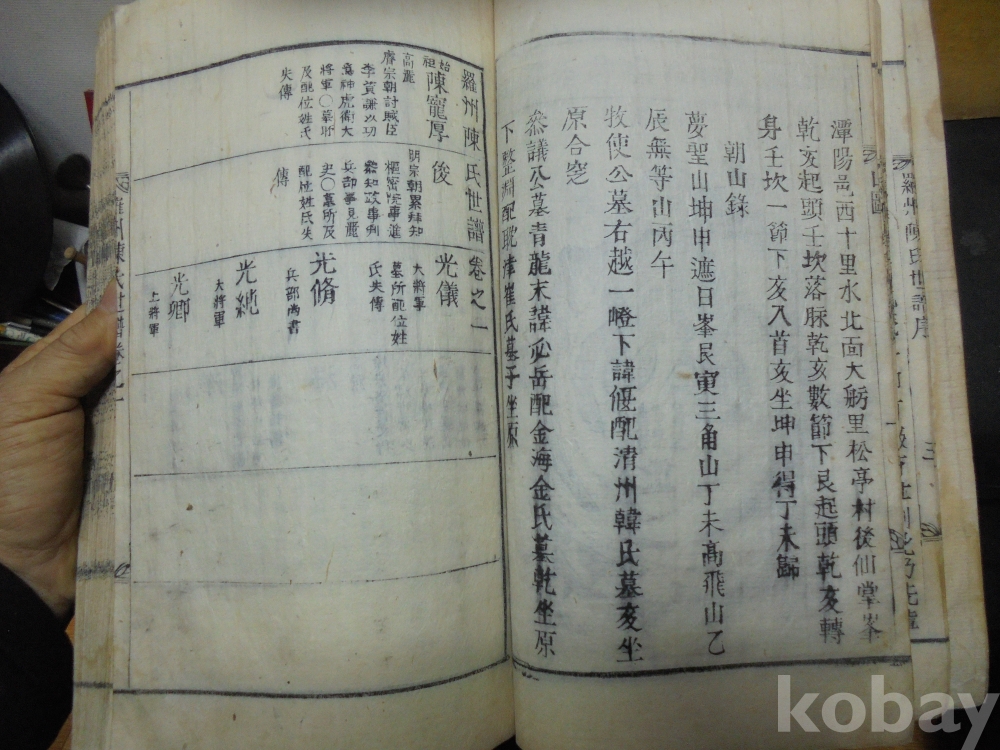 潭陽邑西十里水北面大舫里松亭村後仙堂峯
乾亥起頭壬坎落脉乾亥數節下艮起頭乾亥轉
身壬坎一節下亥入首亥坐坤申得丁未歸
朝山錄
夢聖山坤申遮日峯艮寅三角山丁未高飛山乙
辰無等山丙午
牧使公墓右越一嶝下諱偃配清州韓氏墓亥坐
原合窆
參議公墓青龍末諱必岳配金海金氏墓乾坐原
下整淵配耽津崔氏墓子坐原
羅州陳氏世譜卷之一
始祖
陳寵厚
高麗
睿宗朝討賊臣
李資謙以功
爲神虎衛大
將軍〇墓所
及配位姓氏
失傳
俊
明宗朝累拜知
樞密院事進
叅知政事判
兵部事見麗
史〇墓所及
配位姓氏失
傳
光儀
大將軍
墓所配位姓
氏失傳
光脩
兵部尚書
光純
大將軍
光卿
上將軍
羅州陳氏世譜卷之一
羅州陳氏世譜序
山圖
三
kobay